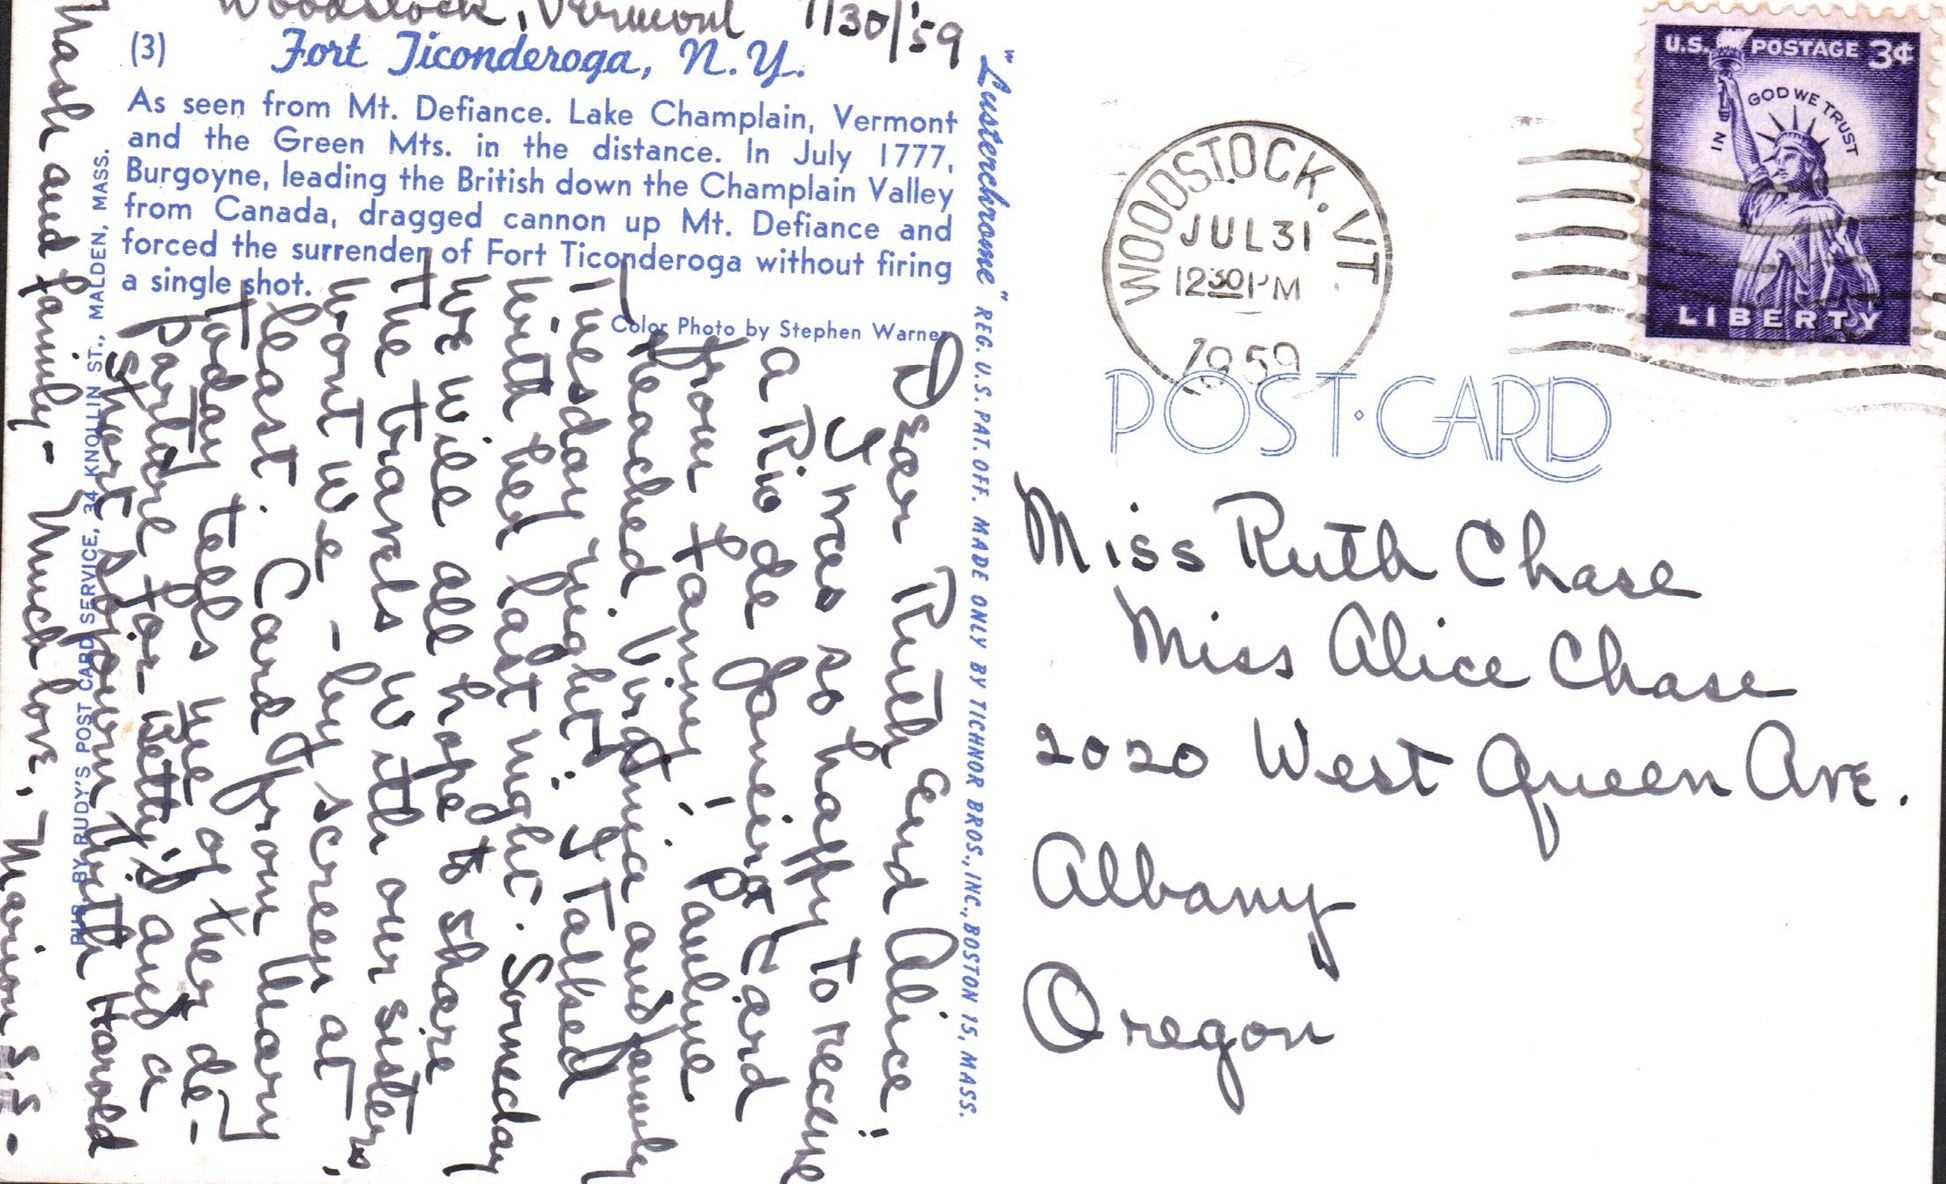 Woodstock, Vermont 7/30/'59
(3) Fort Ticonderoga, N.Y.
As seen from Mt. Defiance. Lake Champlain, Vermont
and the Green Mts. in the distance. In July 1777,
Burgoyne, leading the British down the Champlain Valley
from Canada, dragged cannon up Mt. Defiance and
forced the surrender of Fort Ticonderoga without firing
a single shot.
Color Photo by Stephen Warner
Dear Ruth and Alice!
I was so happy to receive
a Rio de Janeiro card
from Fanny! Pauline
reached Virginia and family
Tuesday night. I talked
with her last night. Someday
we will all hope to share
the travels with our sisters,
wont we - by screen at
least. Card from Mary
Today tells me of her de-
parture for Betty's and a
short sojourn with Harold
Nash and family - Much love, Marion S. S. -
PUB. BY RUDY'S POST CARD SERVICE, 34 KNOLLIN ST., MALDEN, MASS.
"Lusterchrome" REG. U.S. PAT. OFF. MADE ONLY BY TICHNOR BROS., INC., BOSTON 15, MASS.
WOODSTOCK, VT.
JUL 31
12 30 PM
1959
U.S. POSTAGE 3¢
IN GOD WE TRUST
LIBERTY
POST·CARD
Miss Ruth Chase
Miss Alice Chase
2020 West Queen Ave.
Albany
Oregon